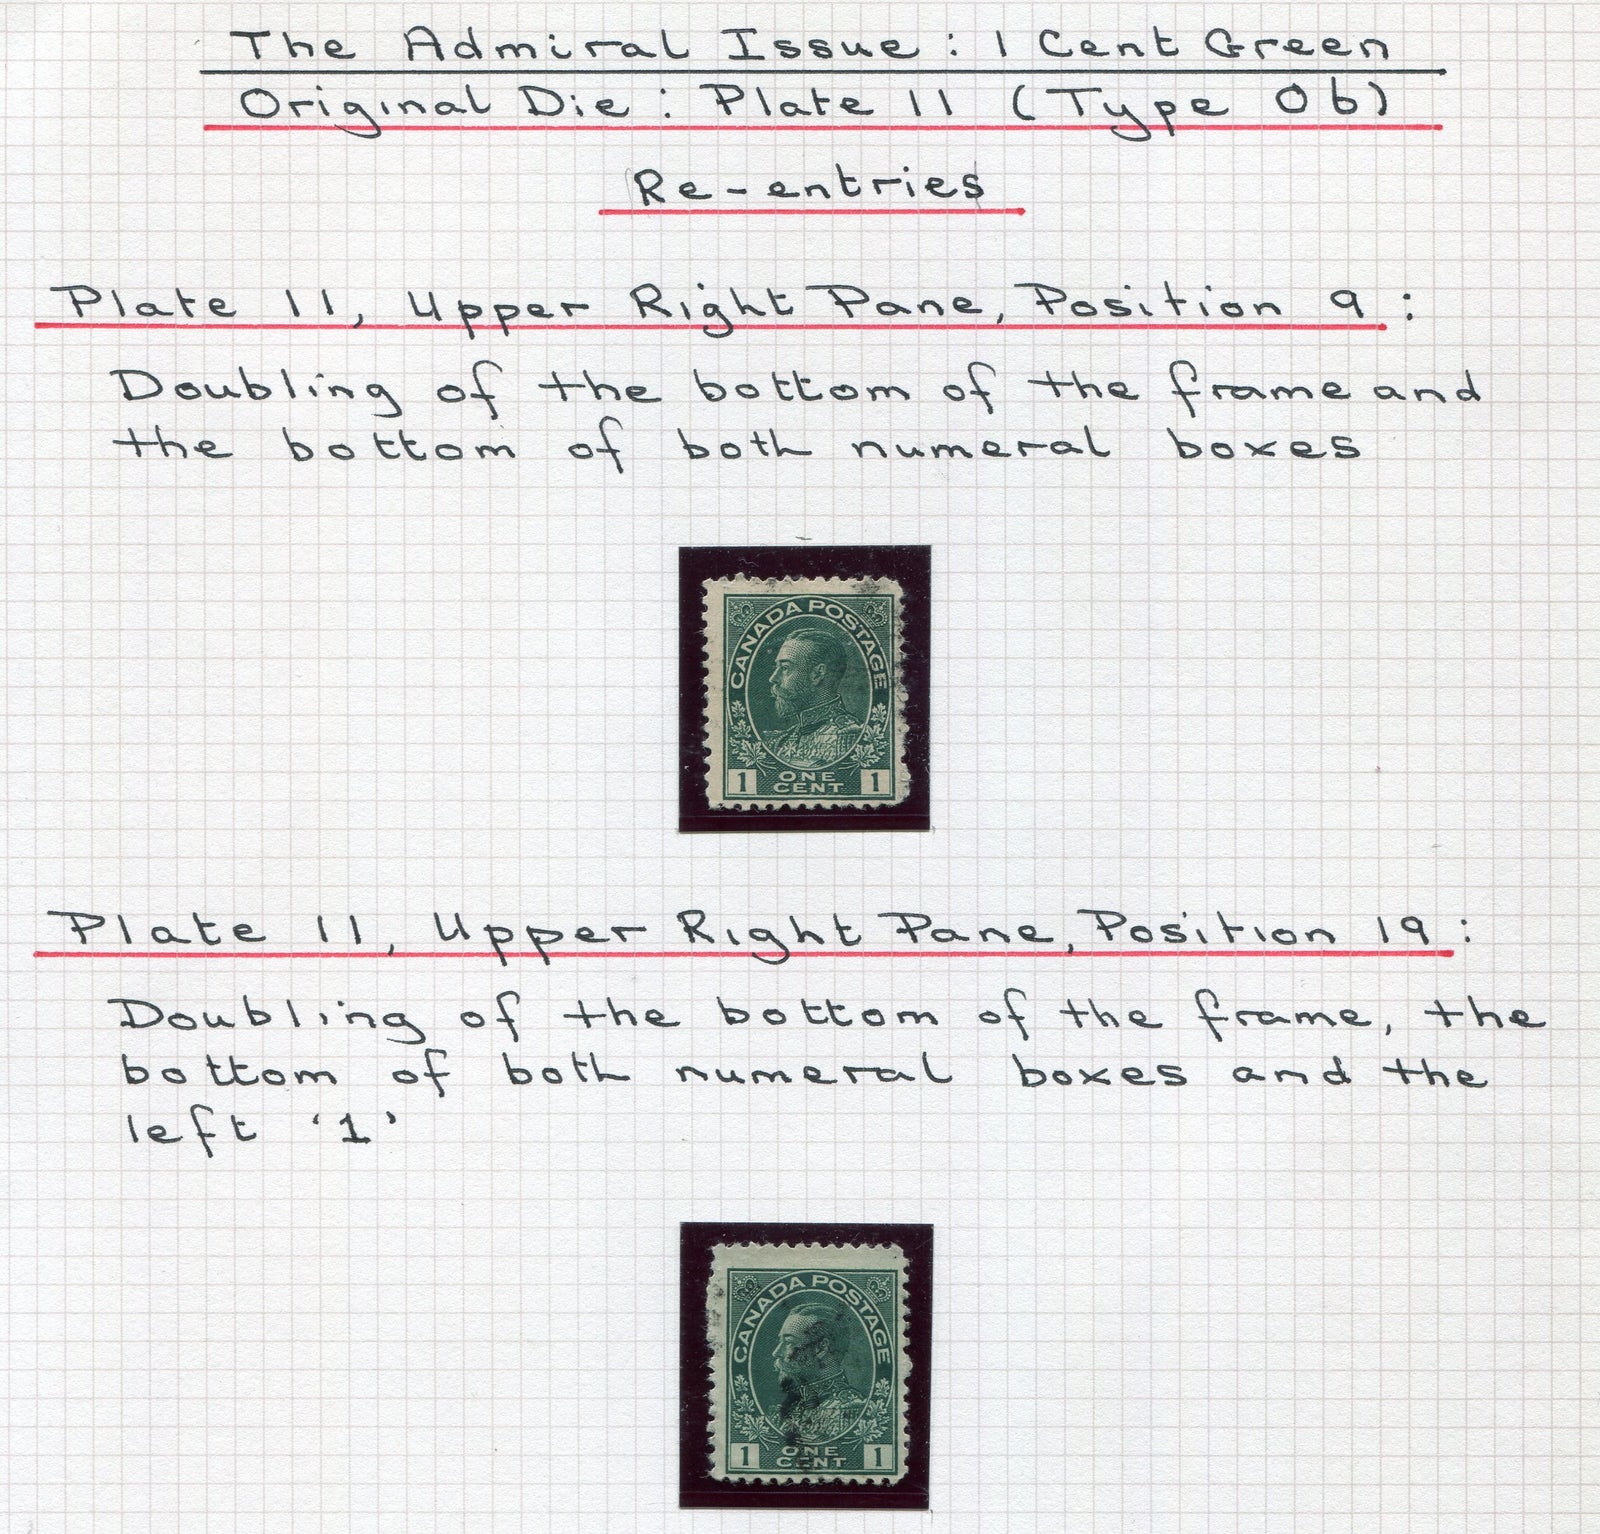 The Admiral Issue: 1 Cent Green
Original Die: Plate 11 (Type Ob)
Re-entries
Plate 11, Upper Right Pane, Position 9:
Doubling of the bottom of the frame and
the bottom of both numeral boxes
CANADA POSTAGE
1 ONE 1
CENT
Plate 11, Upper Right Pane, Position 19:
Doubling of the bottom of the frame, the
bottom of both numeral boxes and the
left '1'
CANADA POSTAGE
1 ONE 1
CENT